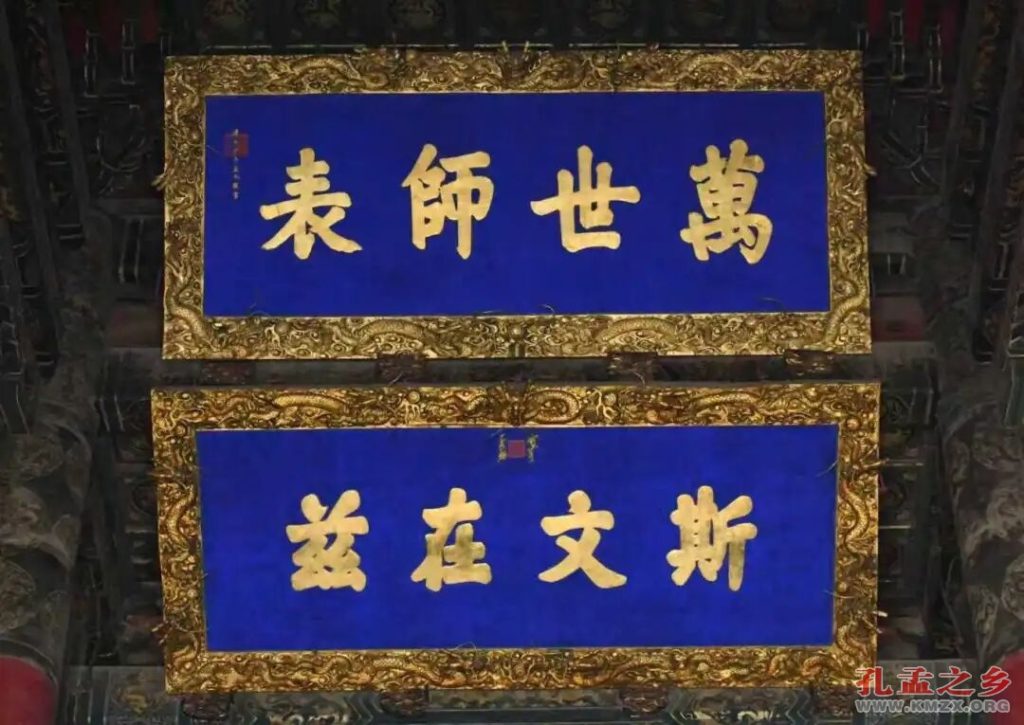 萬世師表
斯文在兹
孔孟之乡
WWW.KMZX.ORG